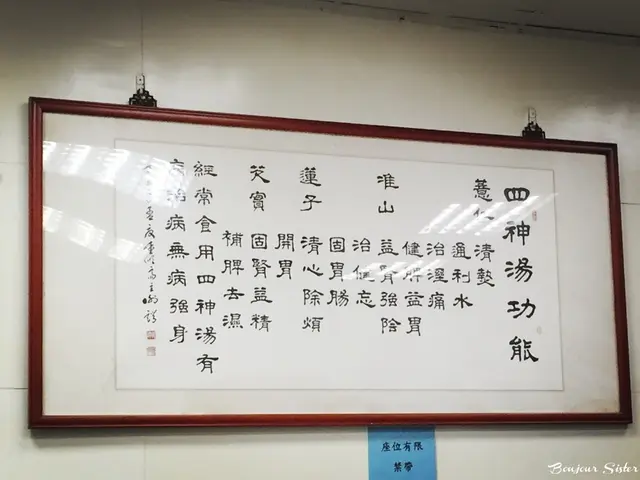 四神湯功能
薏仁 清熱
通利水
治溼痛
健脾益胃
准山 益腎強陰
治健忘
固胃腸
蓮子 清心除煩
開胃
芡實 固腎益精
補脾去濕
經常食用四神湯有
病治病無病強身
座位有限
禁帶
Bonjour Sister